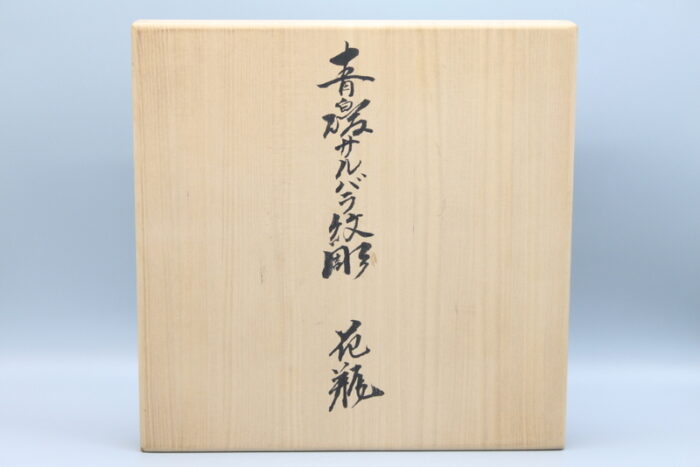 青磁サルバラ紋彫 花瓶